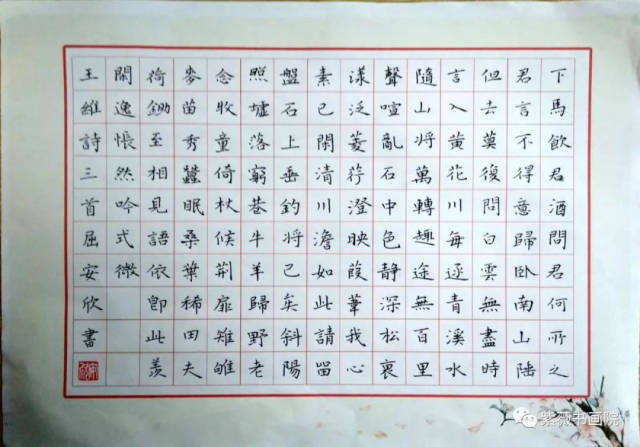 下馬飲君酒問君何所之
君言不得意歸臥南山陲
但去莫復問白雲無盡時
言入黃花川每逐青溪水
隨山將萬轉趣途無百里
聲喧亂石中色靜深松裏
漾泛菱荇澄映葭葦我心
素已閑清川澹如此請留
盤石上垂釣將已矣斜陽
照墟落窮巷牛羊歸野老
念牧童倚杖候荊扉雉雊
麥苗秀蠶眠桑葉稀田夫
荷鋤至相見語依即此羨
閑逸悵然吟式微
王維詩三首屈安欣書
紫薇书画院